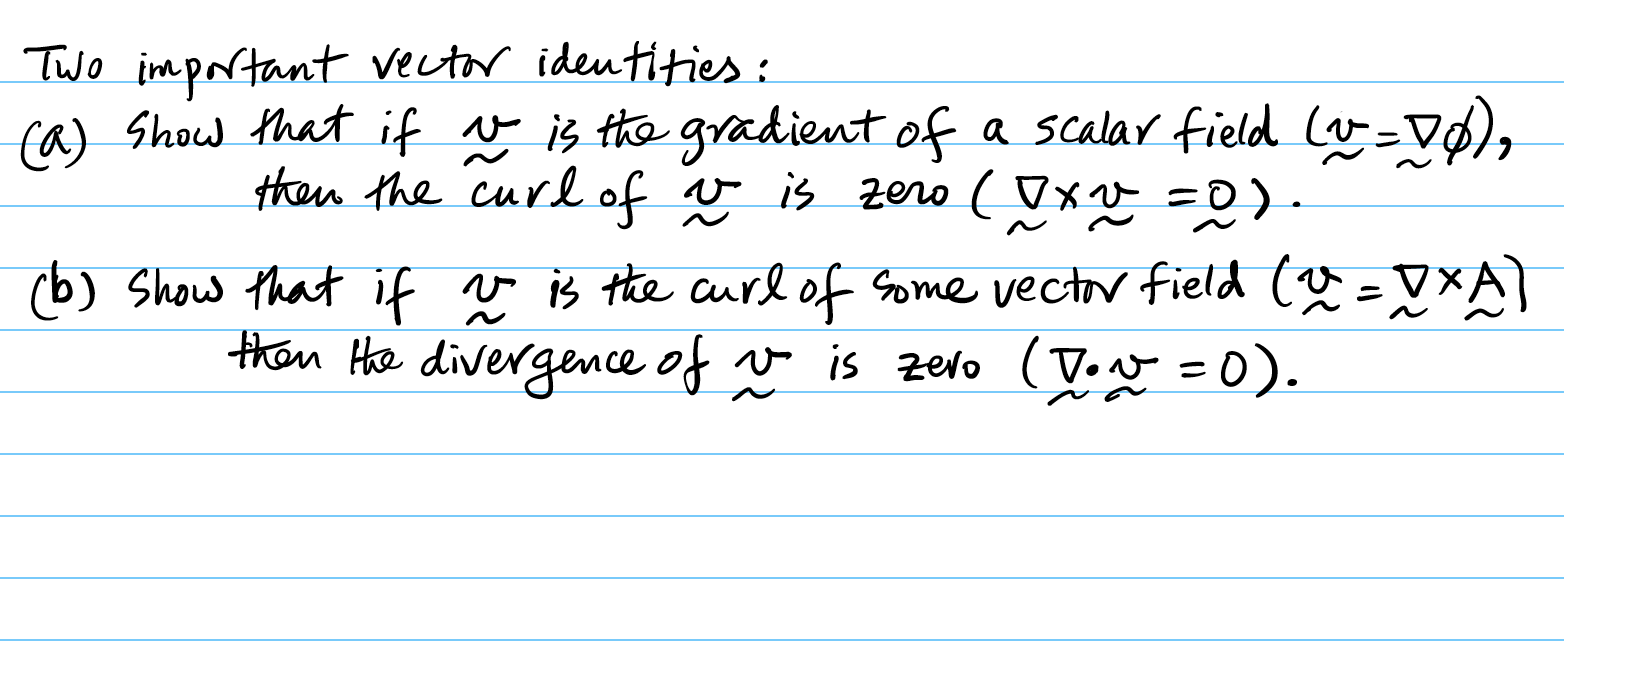 Two important vector identities:
(a) Show that if v is the gradient of a scalar field (v = ∇ϕ),
then the curl of v is zero (∇×v = 0).
(b) Show that if v is the curl of some vector field (v = ∇×A)
then the divergence of v is zero (∇·v = 0).